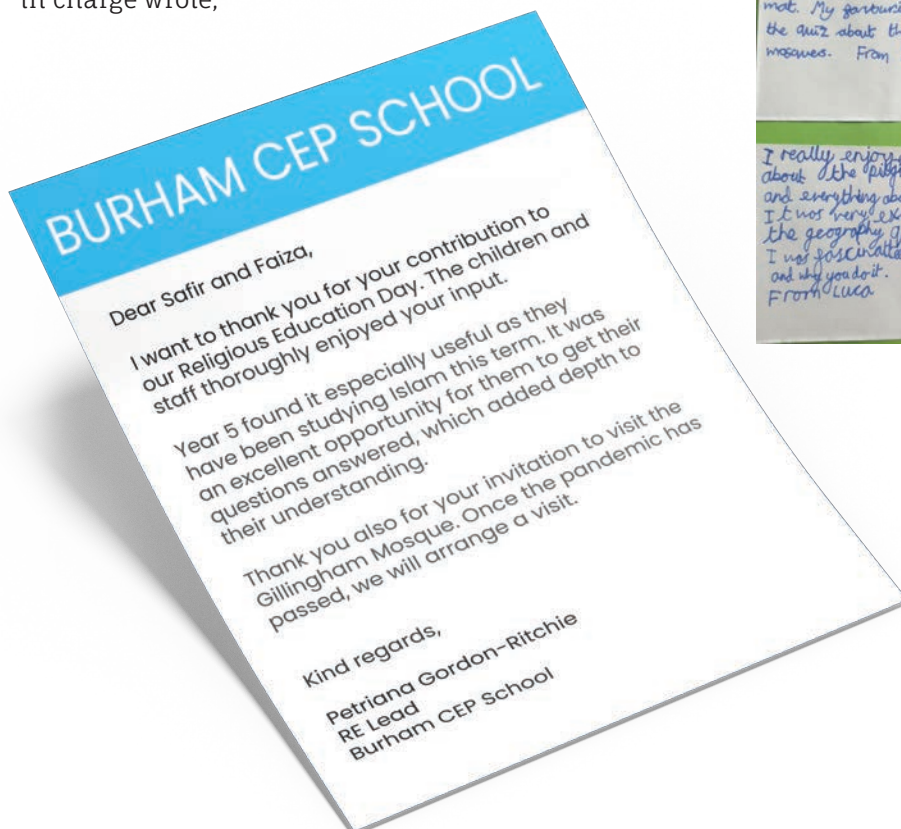 in charge wrote,
BURHAM CEP SCHOOL
Dear Safir and Faiza,
I want to thank you for your contribution to
our Religious Education Day. The children and
staff thoroughly enjoyed your input.
Year 5 found it especially useful as they
have been studying Islam this term. It was
an excellent opportunity for them to get their
questions answered, which added depth to
their understanding.
Thank you also for your invitation to visit the
Gillingham Mosque. Once the pandemic has
passed, we will arrange a visit.
Kind regards,
Petriana Gordon-Ritchie
RE Lead
Burham CEP School
mat. My
the quiz about
mosques. From
I really
about the
and everything
It was very
the geography
I was
and why you do it.
From Luca